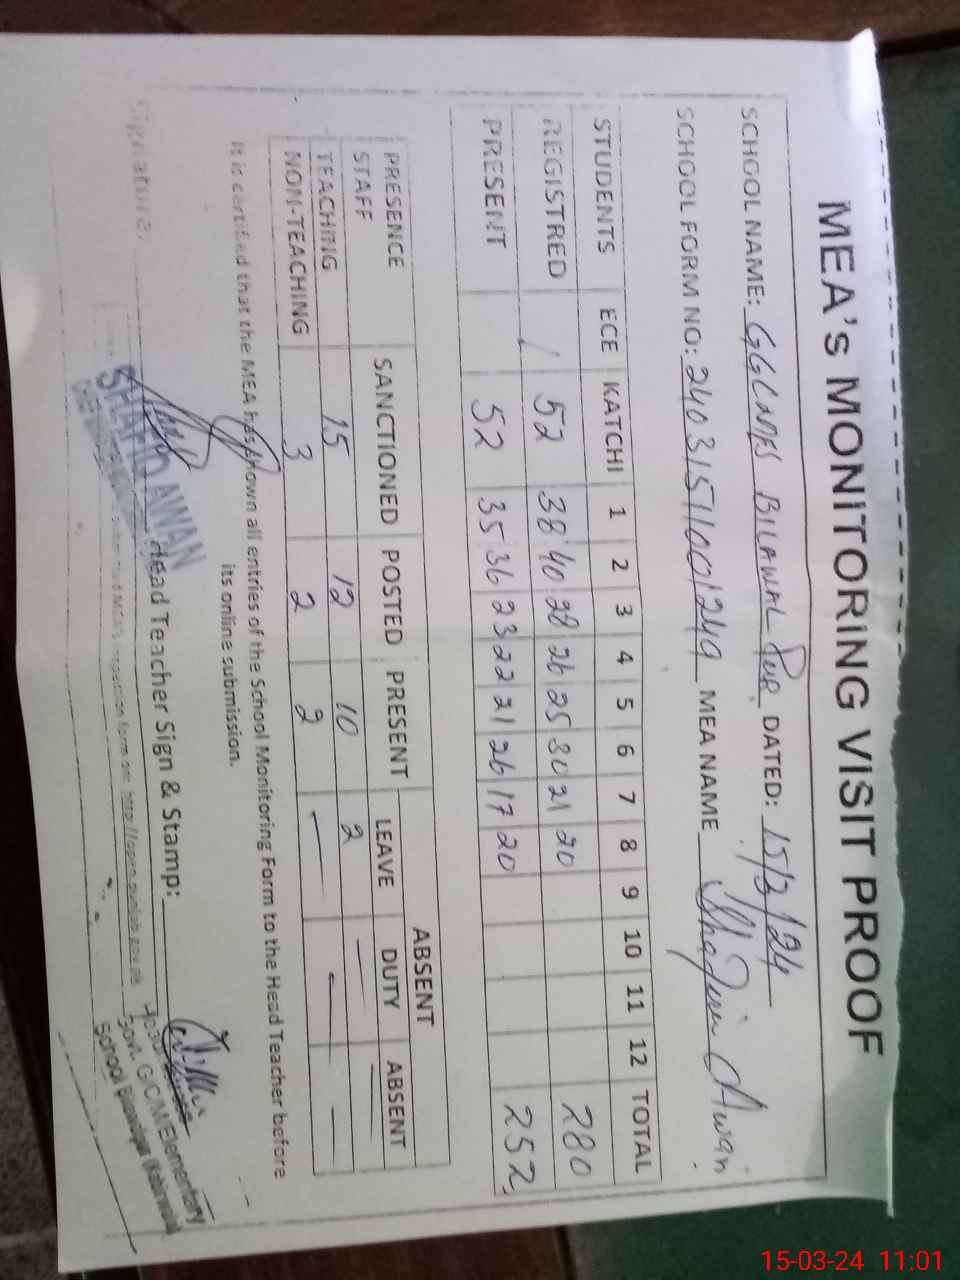 MEA's MONITORING VISIT PROOF
SCHOOL NAME: GGCMES BILAWAL PUR DATED: 15/3/24
SCHOOL FORM NO: MEA NAME Awan
STUDENTS ECE KATCHI 1 2 3 4 5 6 7 8 9 10 11 12 TOTAL
REGISTRED / 52 38 40 28 26 25 30 21 20 280
PRESENT 52 35 36 23 22 21 26 17 20 252
PRESENCE SANCTIONED POSTED PRESENT ABSENT
STAFF LEAVE DUTY ABSENT
TEACHING 15 12 10 2 — —
NON-TEACHING 3 2 2 — — —
It is certified that the MEA has shown all entries of the School Monitoring Form to the Head Teacher before
its online submission.
Signature:
Head Teacher Sign & Stamp:
AWAN
Govt. G/C/M/Elementary
School
15-03-24 11:01